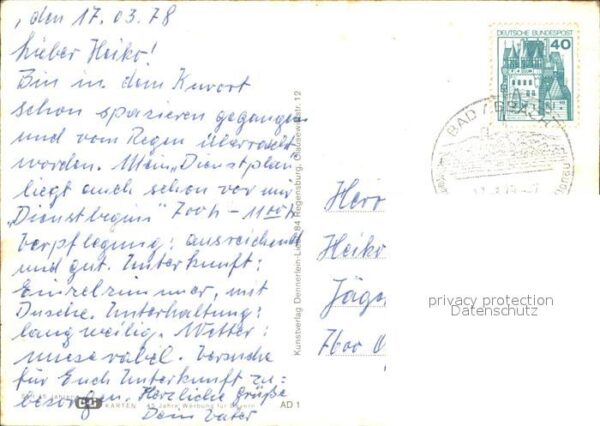 , den 17.03.78
Lieber Heiko!
Bin in dem Kurort
schon spazieren gegangen
und vom Regen überrascht
worden. Mein "Dienstplan"
liegt auch schon vor mir
"Dienstbeginn" 7ooh - 11ooh
Verpflegung: ausreichend
und gut. Unterkunft:
Einzelzimmer, mit
Dusche. Unterhaltung:
langweilig. Wetter:
miserabel. Versuche
für Euch Unterkunft zu=
besorgen. Herzliche Grüße
Dein Vater
KARTEN
45 Jahre Werbung für
AD 1
Kunstverlag Dennerlein 84 Regensburg, 12
DEUTSCHE BUNDESPOST
40
BAD
Herr
Heiko
Jäge
7600 O
privacy protection
Datenschutz